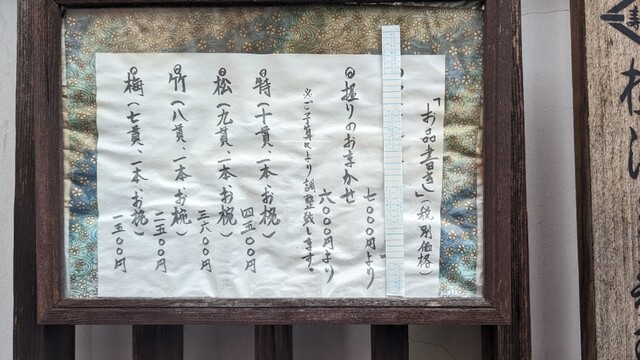 「お品書き」(税別価格)
七〇〇〇円より
握りのおまかせ
六〇〇〇円より
※ご予算により調整致します。
特(十貫、一本、お椀)
四五〇〇円
松(九貫、一本、お椀)
三六〇〇円
竹(八貫、一本、お椀)
二五〇〇円
梅(七貫、一本、お椀)
一五〇〇円